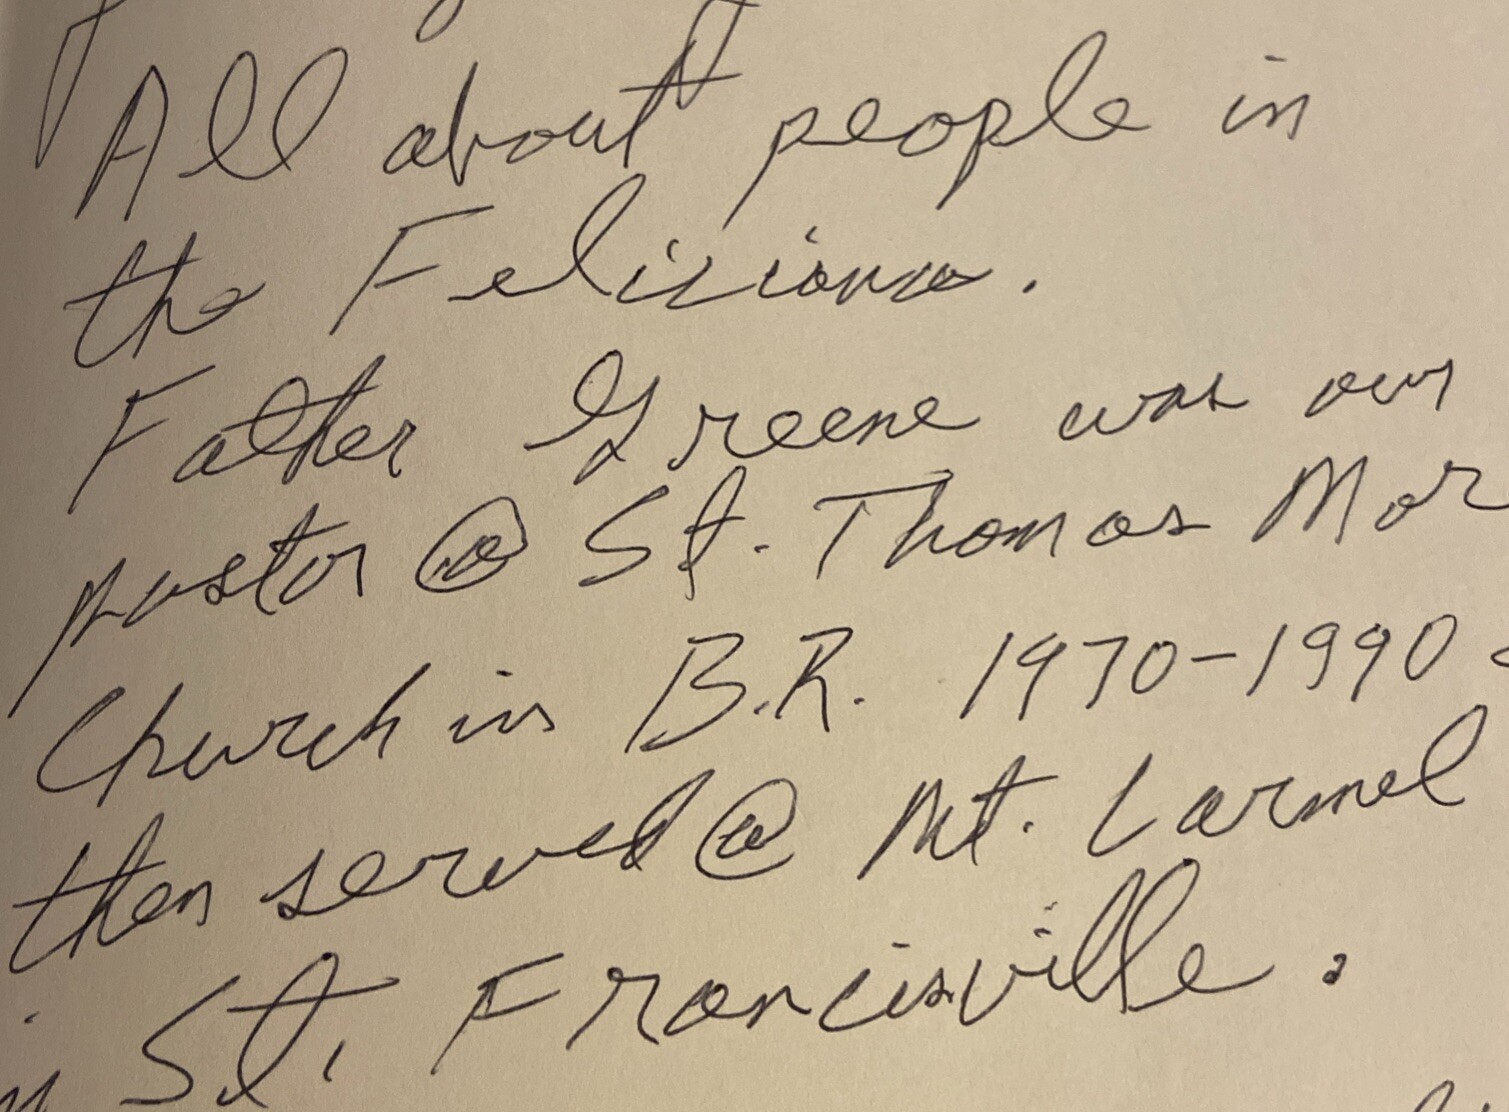 All about people in
the Feliciana.
Father Greene was our
pastor @ St. Thomas Mor
Church in B.R. 1970-1990
then served @ Mt. Carmel
in St. Francisville.